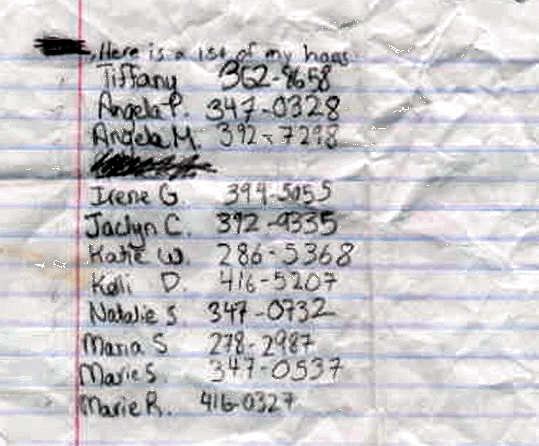 , Here is a list of my hoes
Tiffany 362-8658
Angela P. 347-0328
Angela M. 392-7298
Irene G. 394-5055
Jaclyn C. 392-9335
Katie W. 286-5368
Kelli D. 416-5207
Natalie S. 347-0732
Maria S 278-2987
Marie S. 347-0537
Marie R. 416-0327